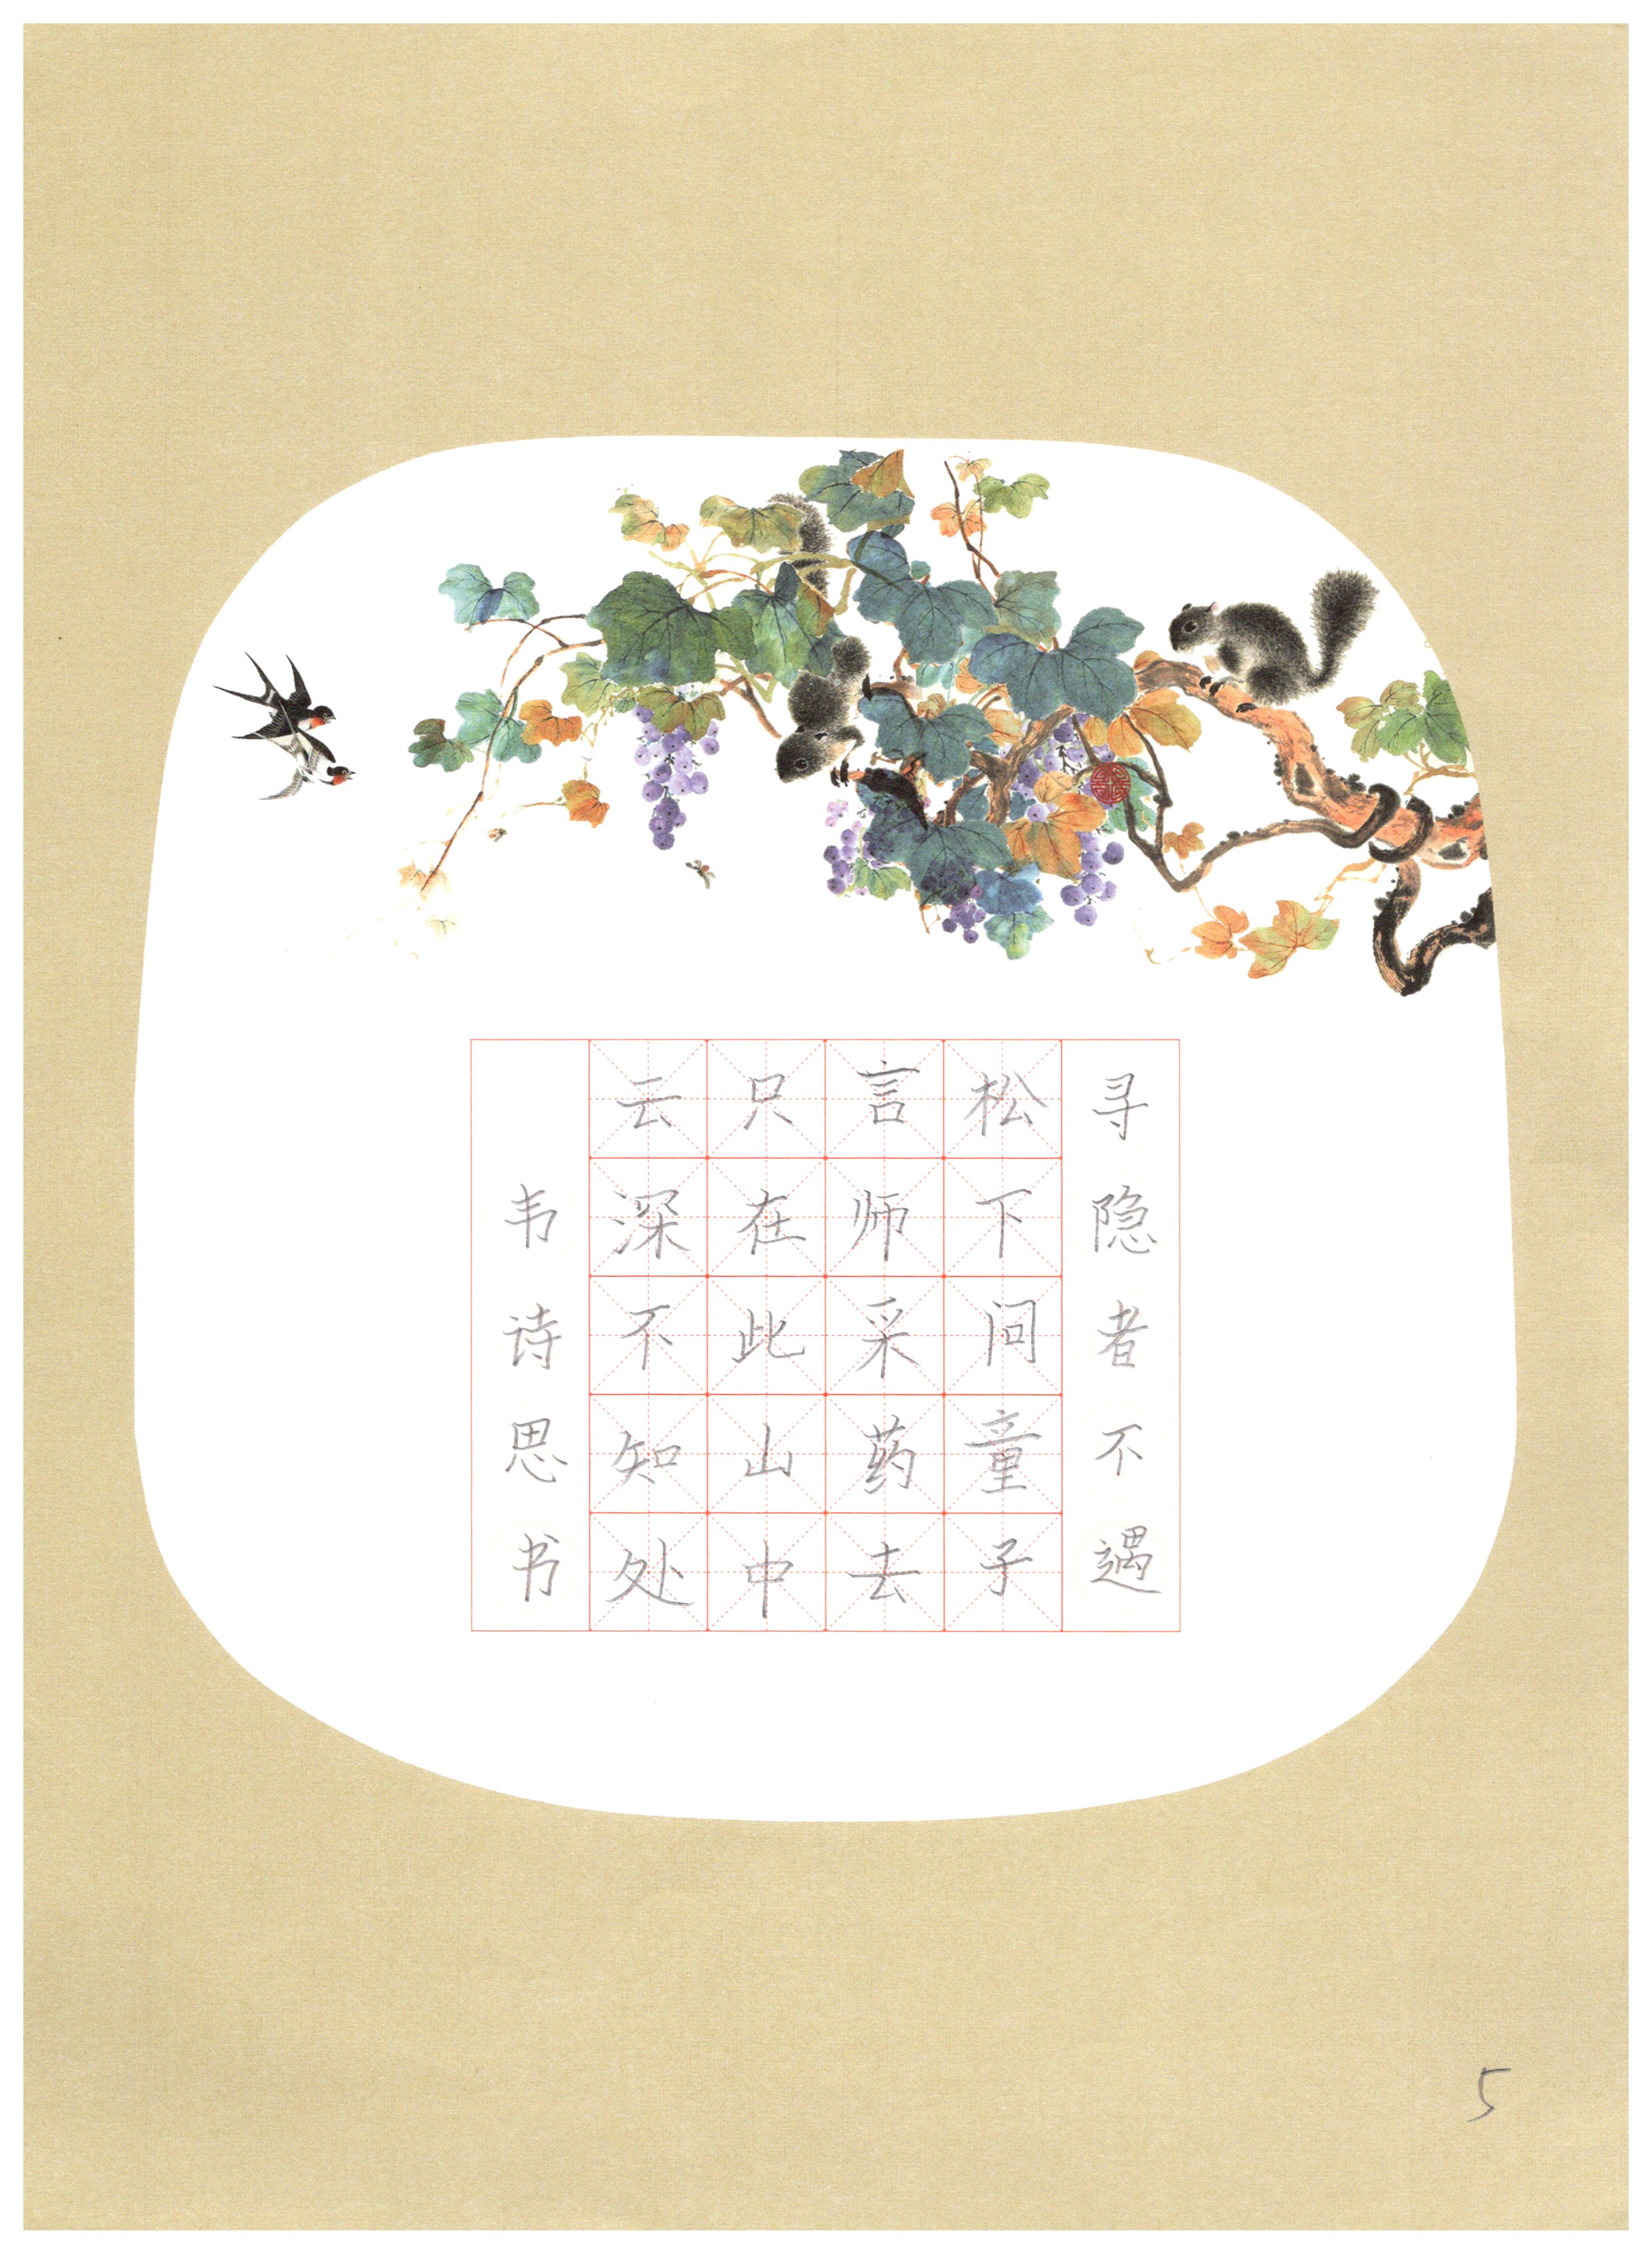 寻隐者不遇
松下问童子
言师采药去
只在此山中
云深不知处
韦诗思书
5